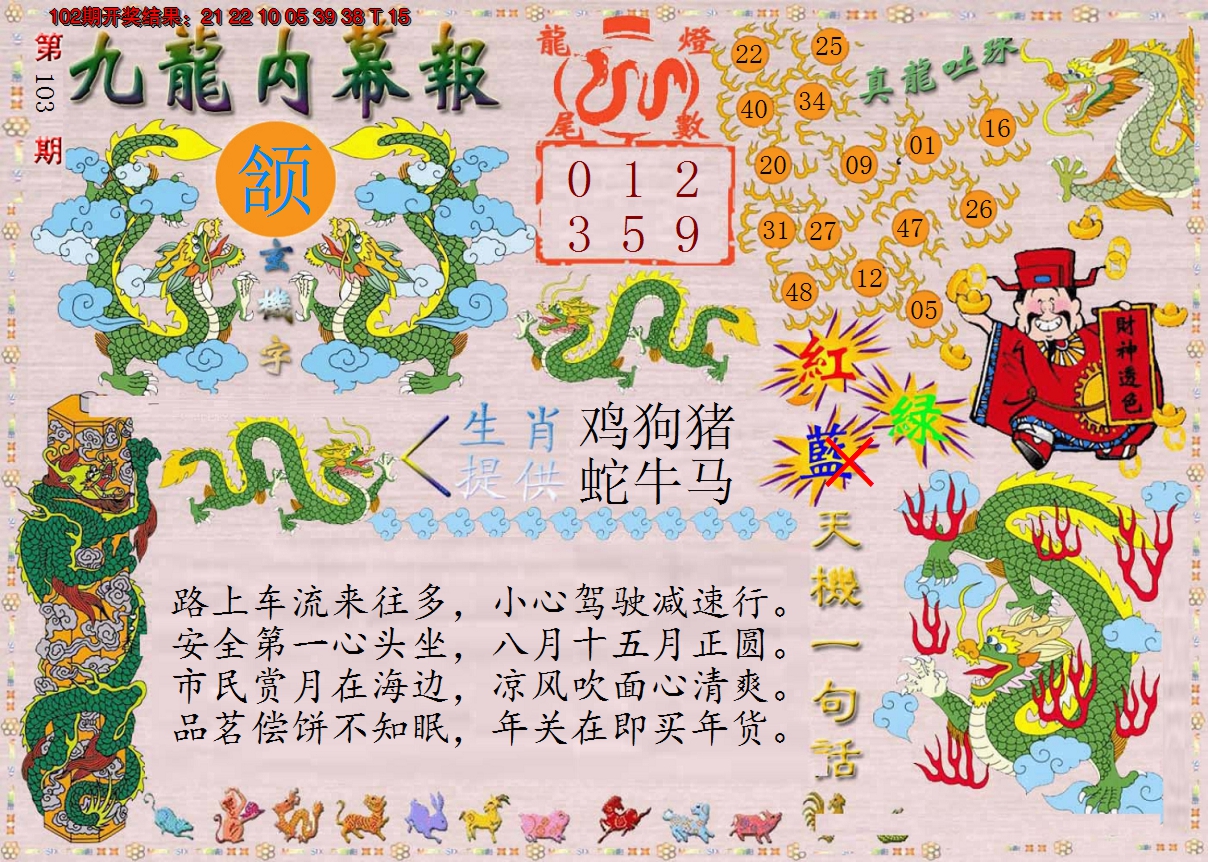 102期开奖结果：21 22 10 05 39 38 T 15
第103期
九龍内幕報
颔
玄機字
龍燈
尾數
0 1 2
3 5 9
真龍吐珠
22 25
40 34
20 09 01 16
31 27 47 26
48 12 05
財神透色
紅
綠
藍
生肖 鸡狗猪
提供 蛇牛马
天機一句话
路上车流来往多，小心驾驶减速行。
安全第一心头坐，八月十五月正圆。
市民赏月在海边，凉风吹面心清爽。
品茗偿饼不知眠，年关在即买年货。